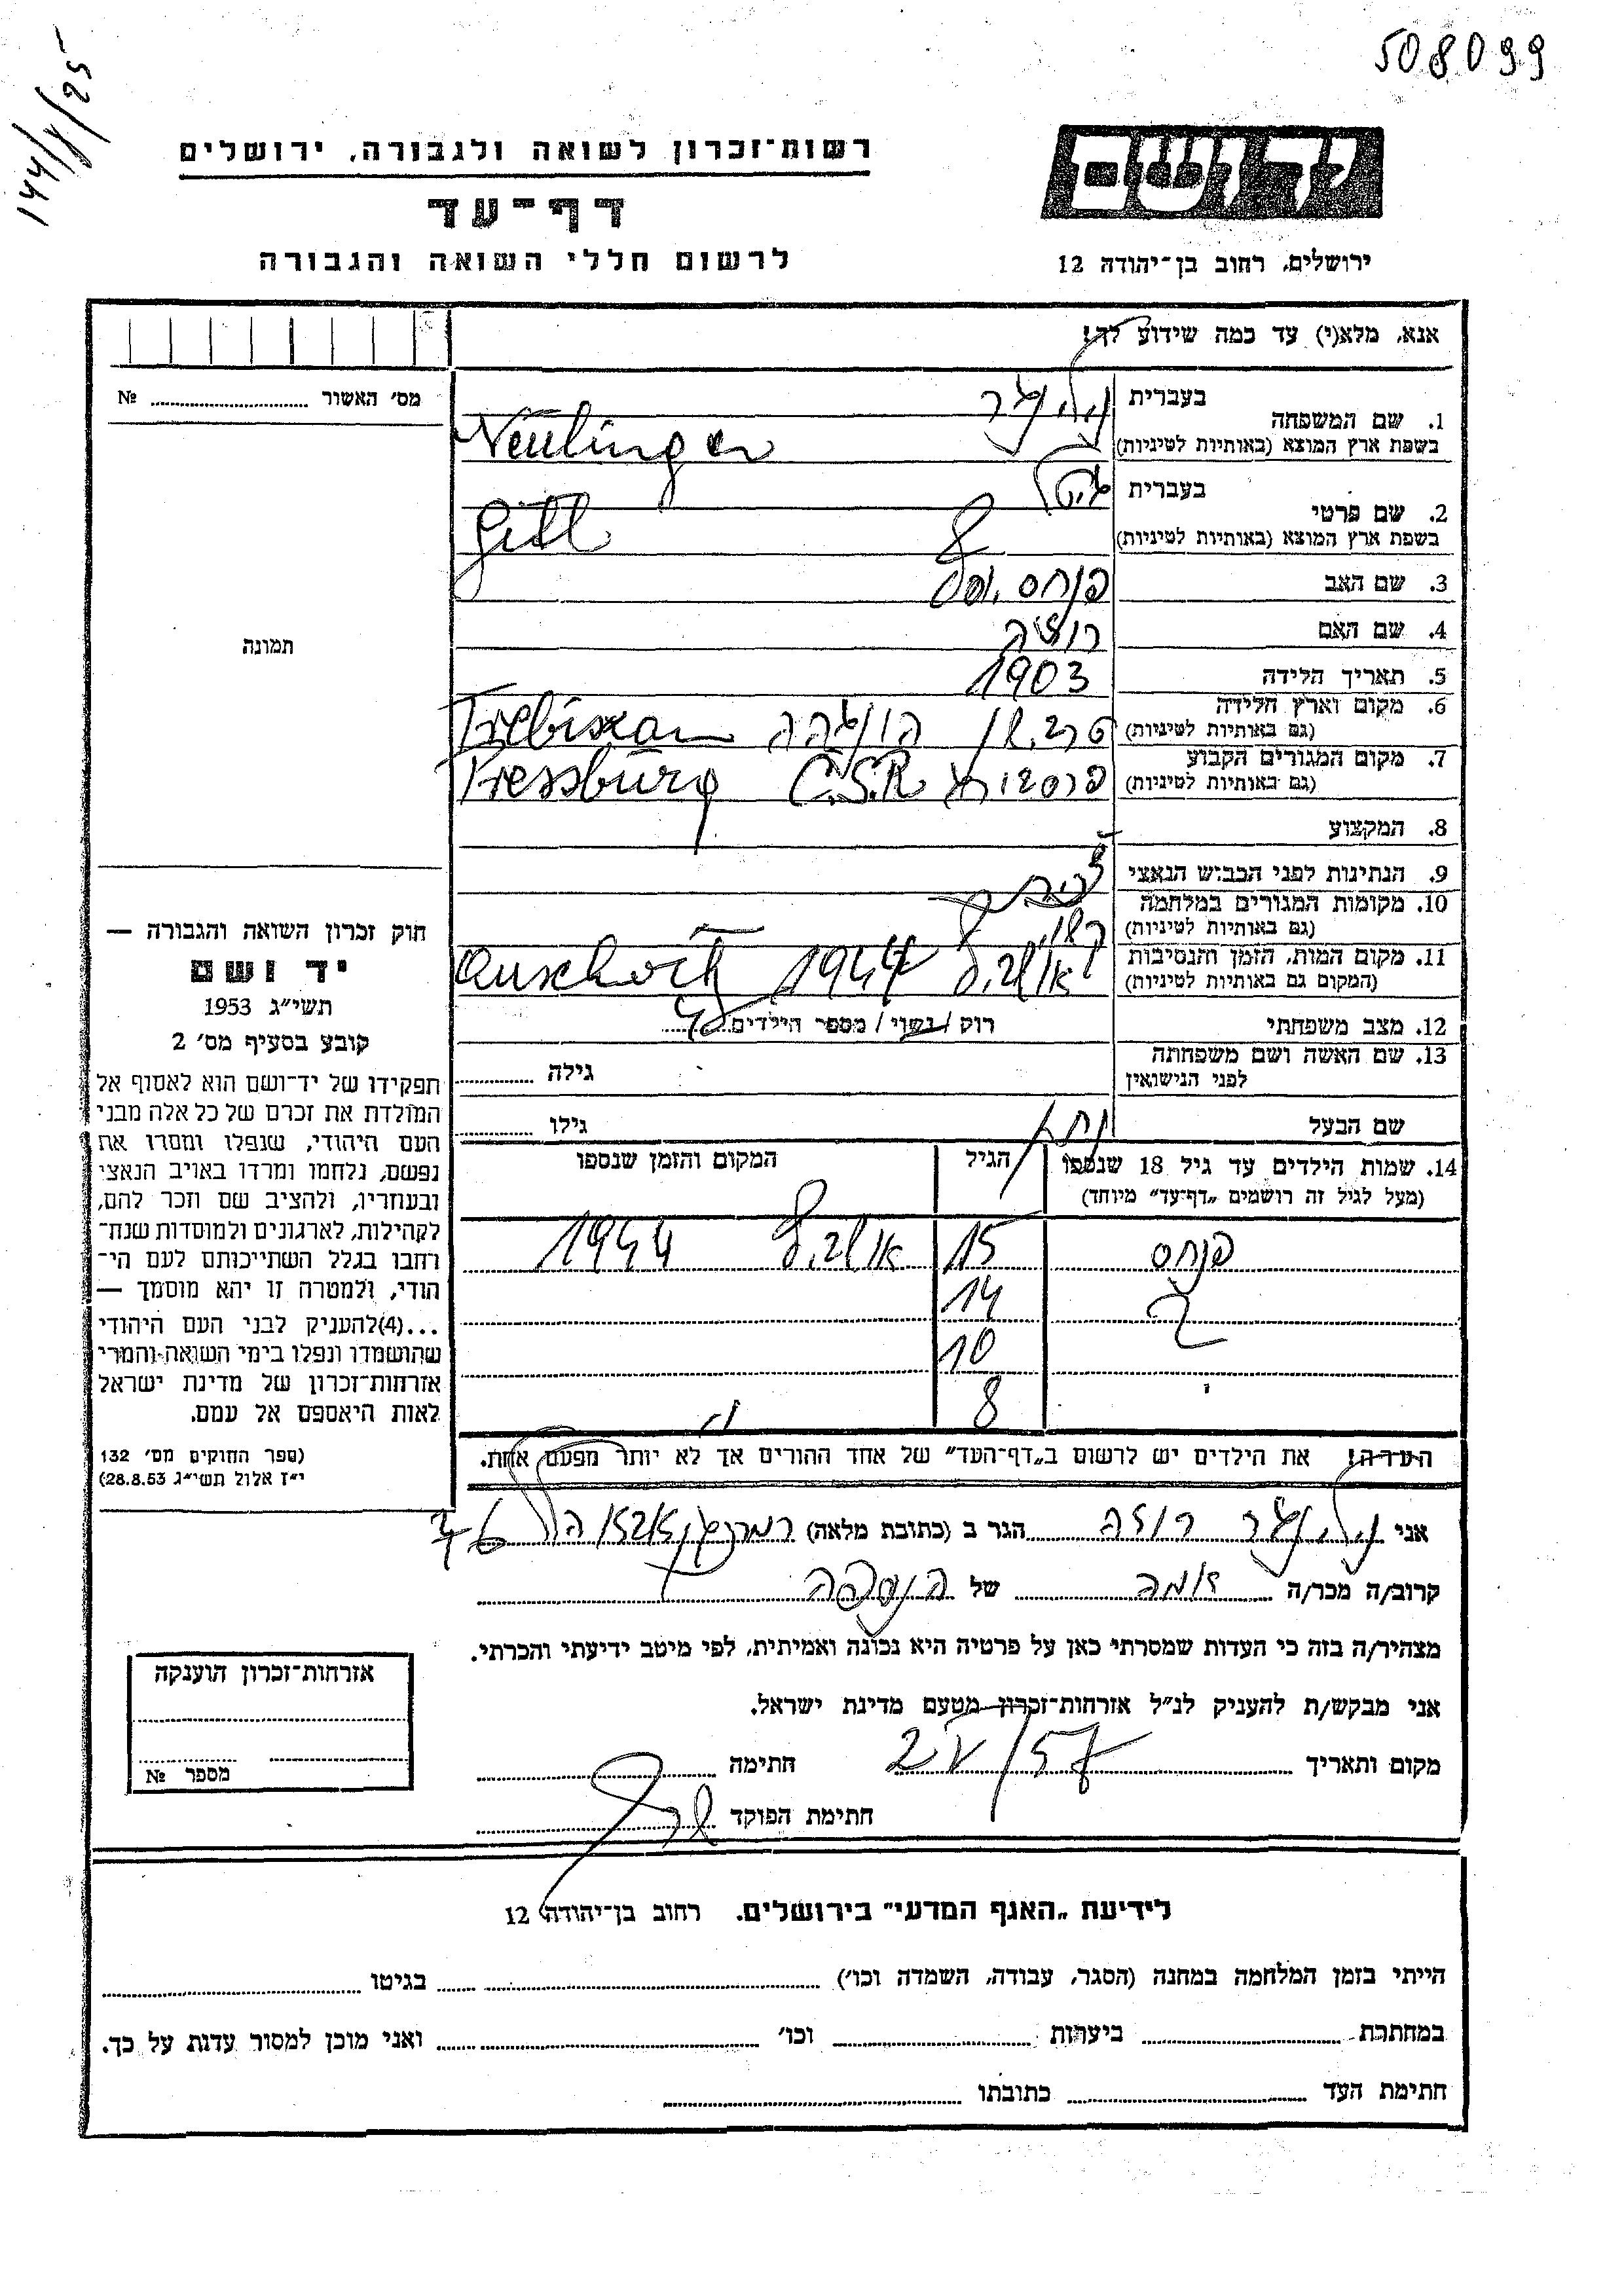 508099
144/8/25
רשות־זכרון לשואה ולגבורה, ירושלים
דף־עד
לרשום חללי השואה והגבורה
יד ושם
ירושלים, רחוב בן־יהודה 12
אנא, מלא(י) עד כמה שידוע לך!
מס׳ האשור № 
תמונה
חוק זכרון השואה והגבורה —
יד ושם
תשי״ג 1953
קובע בסעיף מס׳ 2
תפקידו של יד־ושם הוא לאסוף אל
המולדת את זכרם של כל אלה מבני
העם היהודי, שנפלו ומסרו את
נפשם, נלחמו ומרדו באויב הנאצי
ובעוזריו, ולהציב שם וזכר להם,
לקהילות, לארגונים ולמוסדות שנח־
רחבו בגלל השתייכותם לעם הי־
הודי, ולמטרה זו יהא מוסמך —
...(4)להעניק לבני העם היהודי
שהושמדו ונפלו בימי השואה והמרי
אזרחות־זכרון של מדינת ישראל
לאות היאספם אל עמם.
(ספר החוקים מס׳ 132
י״ז אלול תשי״ג 28.8.53)
1. שם המשפחה בעברית
בשפת ארץ המוצא (באותיות לטיניות) Neulinger
2. שם פרטי בעברית גיטל
בשפת ארץ המוצא (באותיות לטיניות) Gitl
3. שם האב פנחס יוסף
4. שם האם
5. תאריך הלידה 1903
6. מקום וארץ הלידה
(גם באותיות לטיניות) הונגריה Trebiszau
7. מקום המגורים הקבוע
(גם באותיות לטיניות) פרסבורג C.S.R Pressburg
8. המקצוע
9. הנתינות לפני הכבוש הנאצי
10. מקומות המגורים במלחמה
(גם באותיות לטיניות)
11. מקום המות, הזמן והנסיבות
(המקום גם באותיות לטיניות) אושביץ 1944 Auschwitz
12. מצב משפחתי רוק / נשוי / מספר הילדים
13. שם האשה ושם משפחתה
לפני הנישואין גילה
שם הבעל נתן גילו
14. שמות הילדים עד גיל 18 שנספו הגיל המקום והזמן שנספו
(מעל לגיל זה רושמים „דף־עד״ מיוחד)
פנחס 15 אושביץ 1944
14
10
8
הערה! את הילדים יש לרשום ב„דף־העד״ של אחד ההורים אך לא יותר מפעם אחת.
אני נוילינגר רוזה הגר ב (כתובת מלאה)
קרוב/ה מכר/ה גיסה של הנספה
מצהיר/ה בזה כי העדות שמסרתי כאן על פרטיה היא נכונה ואמיתית, לפי מיטב ידיעתי והכרתי.
אני מבקש/ת להעניק לנ״ל אזרחות־זכרון מטעם מדינת ישראל.
מקום ותאריך 2 V/57 חתימה
חתימת הפוקד
אזרחות־זכרון הוענקה
מספר №
לידיעת „האגף המדעי״ בירושלים. רחוב בן־יהודה 12
הייתי בזמן המלחמה במחנה (הסגר, עבודה, השמדה וכו׳) בגיטו
במחתרת ביערות וכו׳ ואני מוכן למסור עדות על כך.
חתימת העד כתובתו